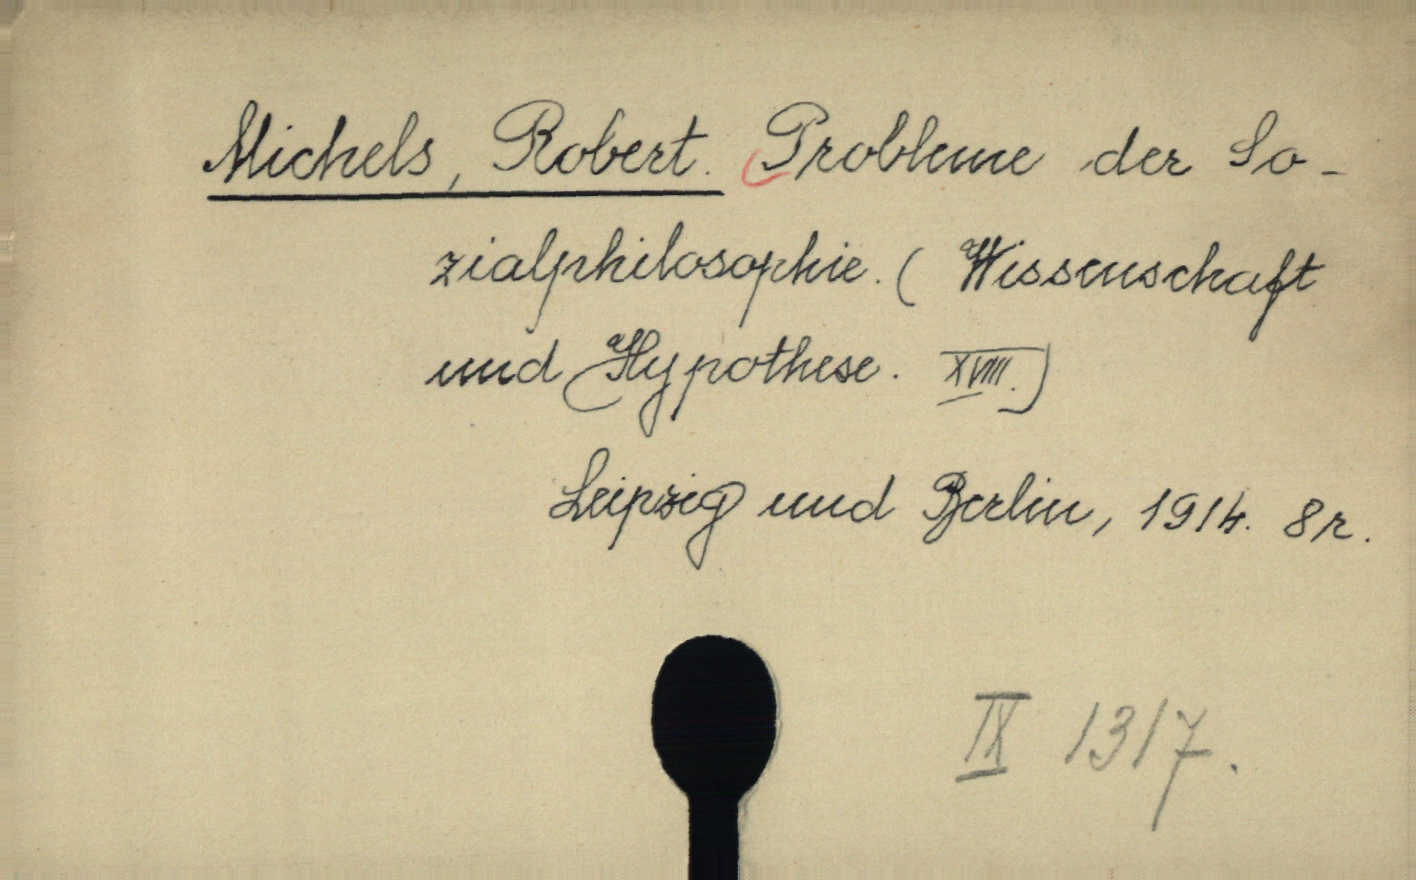 Michels, Robert. Probleme der So-
zialphilosophie. (Wissenschaft
und Hypothese. XVIII.)
Leipzig und Berlin, 1914. 8r.
IX 1317.